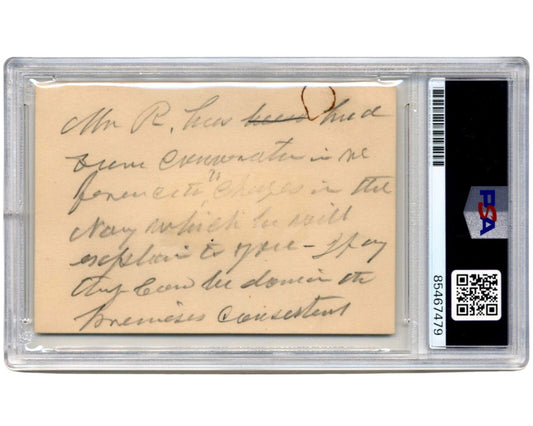 Mr R. has been had
some conversation in re
ference to "Chages in the
Navy which he will
explain to you - If any
thing can be done in the
premises consistent
PSA
85467479